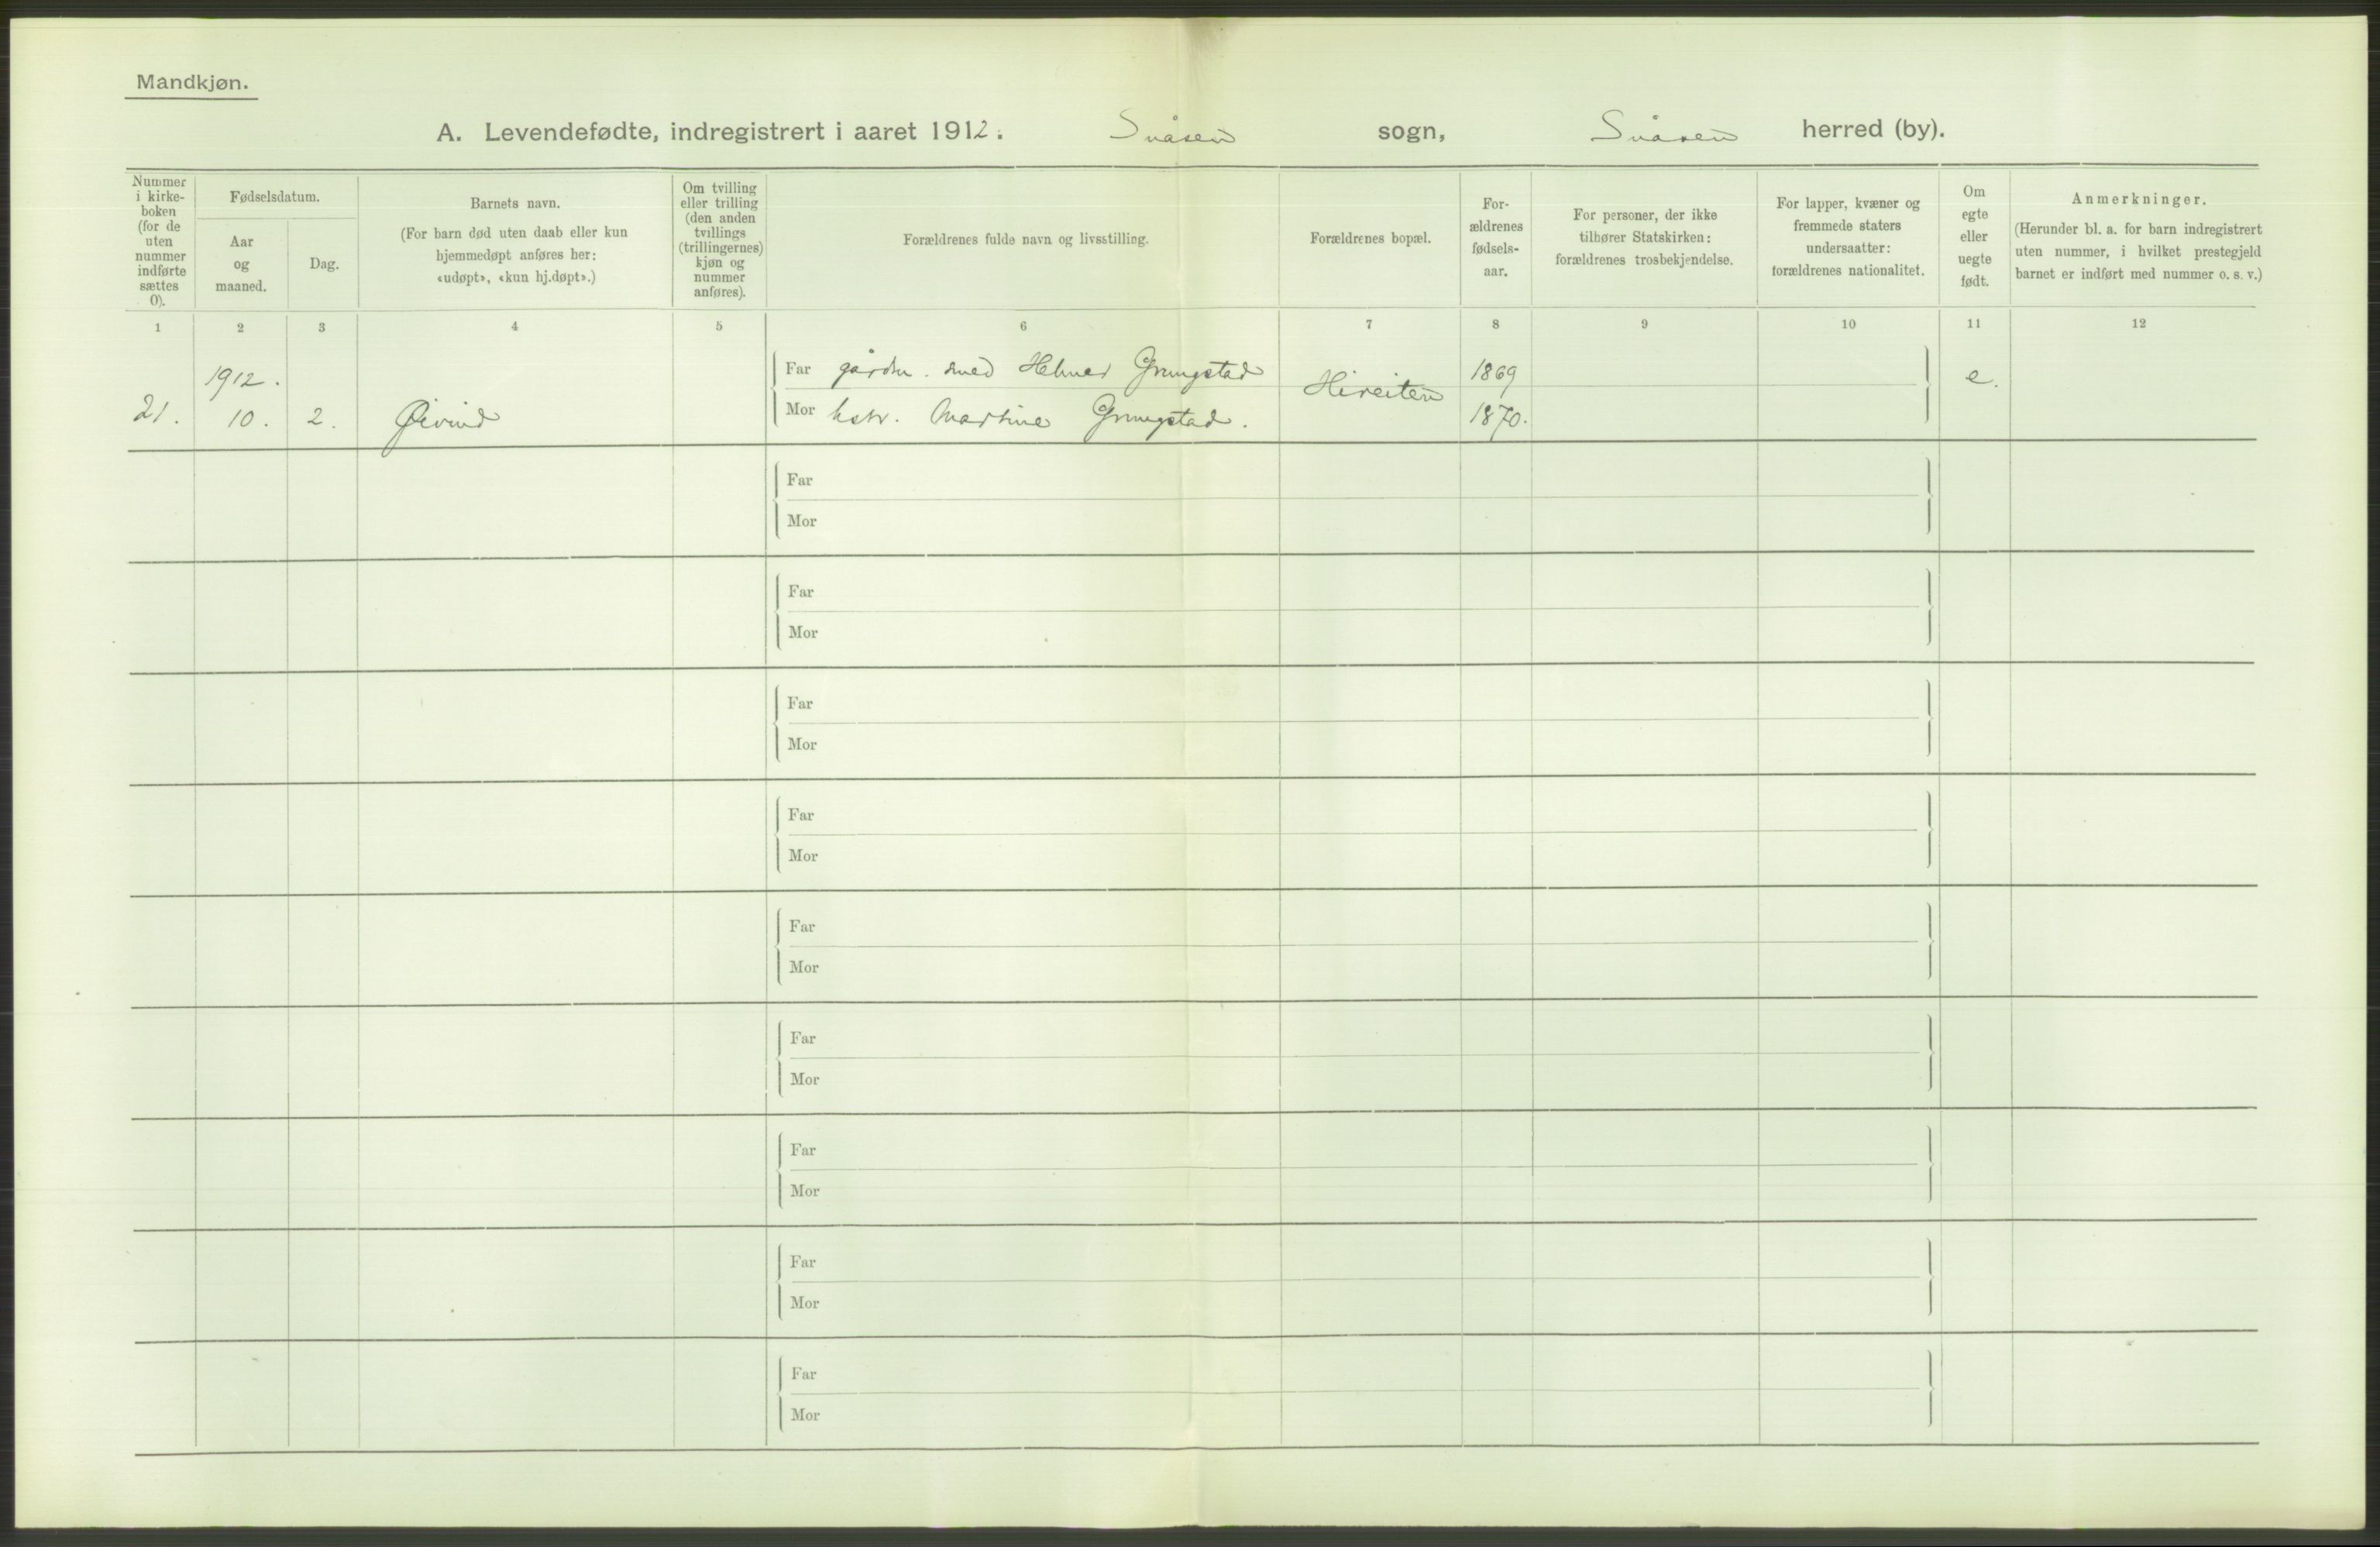 Mandkjøn.
A. Levendefødte, indregistrert i aaret 1912. Snåsen sogn, Snåsen herred (by).
Nummer
i kirke-
boken
(for de
uten
nummer
indførte
sættes
0).
Fødselsdatum.
Aar
og
maaned.
Dag.
Barnets navn.
(For barn død uten daab eller kun
hjemmedøpt anføres her:
«udøpt», «kun hj.døpt».)
Om tvilling
eller trilling
(den anden
tvillings
(trillingernes)
kjøn og
nummer
anføres).
Forældrenes fulde navn og livsstilling.
Forældrenes bopæl.
For-
ældrenes
fødsels-
aar.
For personer, der ikke
tilhører Statskirken:
forældrenes trosbekjendelse.
For lapper, kvæner og
fremmede staters
undersaatter:
forældrenes nationalitet.
Om
egte
eller
uegte
født.
Anmerkninger.
(Herunder bl. a. for barn indregistrert
uten nummer, i hvilket prestegjeld
barnet er indført med nummer o. s. v.)
1 2 3 4 5 6 7 8 9 10 11 12
1912. Far smed Helmer Grungstad 1869 e.
21. 10. 2. Øivind Mor hstr. Martine Grungstad. Hireiten 1870.
Far
Mor
Far
Mor
Far
Mor
Far
Mor
Far
Mor
Far
Mor
Far
Mor
Far
Mor
Far
Mor